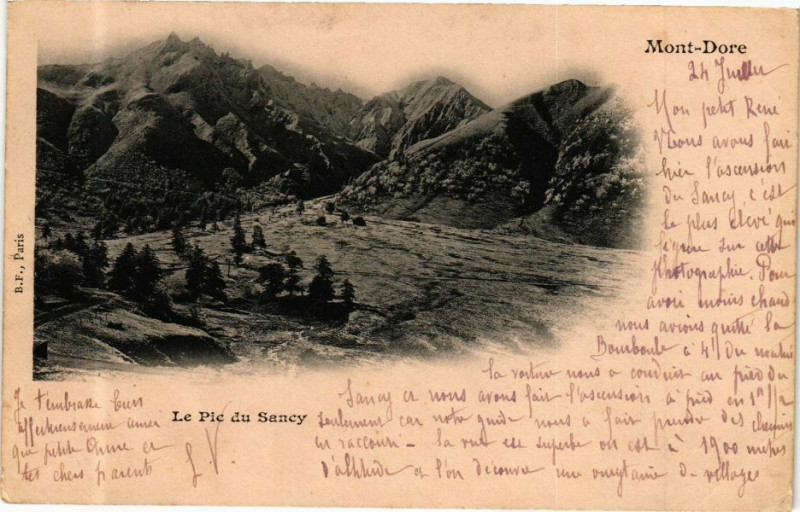 Mont-Dore
24 Juillet
Mon petit René
Nous avons fait
hier l'ascension
du Sancy, c'est
le plus élevé qui
figure sur cette
photographie. Pour
avoir moins chaud
nous avions quitté la
Bourboule à 4h du matin
la voiture nous a conduit au pied du
Sancy et nous avons fait l'ascension à pied en 1h 1/2
seulement car notre guide nous a fait prendre des chemins
en raccourci - la vue est superbe on est à 1900 mètres
d'altitude et l'on découvre une vingtaine de villages
Je t'embrasse bien
affectueusement ainsi
que petite Anne et
tes chers parents
L V.
Le Pic du Sancy
B.F., Paris